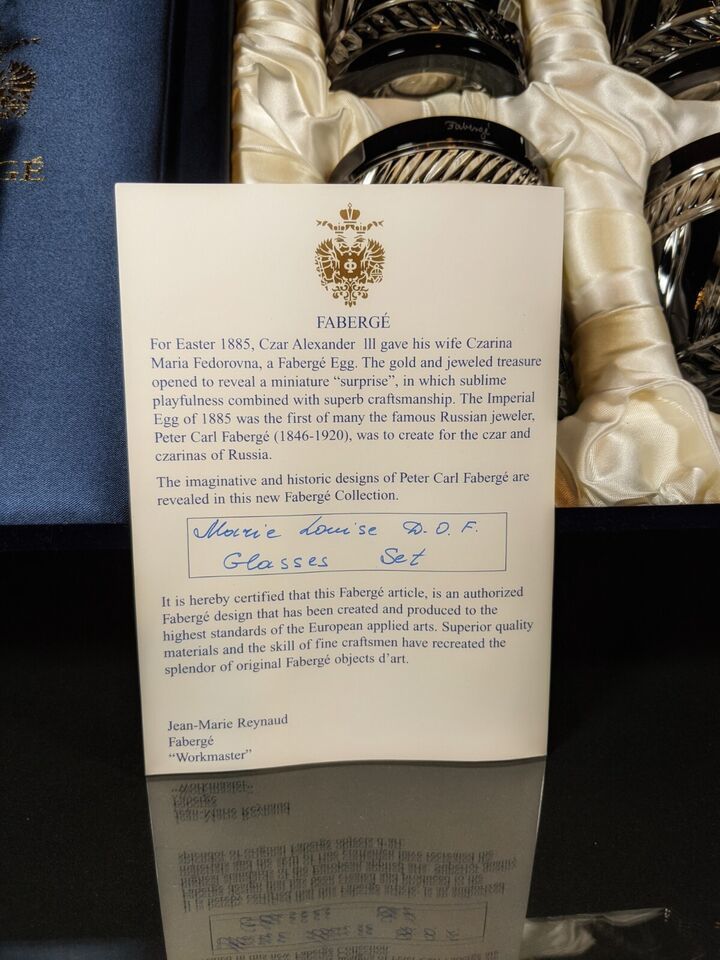 GÉ
Fabergé
FABERGÉ
For Easter 1885, Czar Alexander lll gave his wife Czarina
Maria Fedorovna, a Fabergé Egg. The gold and jeweled treasure
opened to reveal a miniature “surprise”, in which sublime
playfulness combined with superb craftsmanship. The Imperial
Egg of 1885 was the first of many the famous Russian jeweler,
Peter Carl Fabergé (1846-1920), was to create for the czar and
czarinas of Russia.
The imaginative and historic designs of Peter Carl Fabergé are
revealed in this new Fabergé Collection.
Marie Louise D.O.F.
Glasses Set
It is hereby certified that this Fabergé article, is an authorized
Fabergé design that has been created and produced to the
highest standards of the European applied arts. Superior quality
materials and the skill of fine craftsmen have recreated the
splendor of original Fabergé objects d’art.
Jean-Marie Reynaud
Fabergé
“Workmaster”